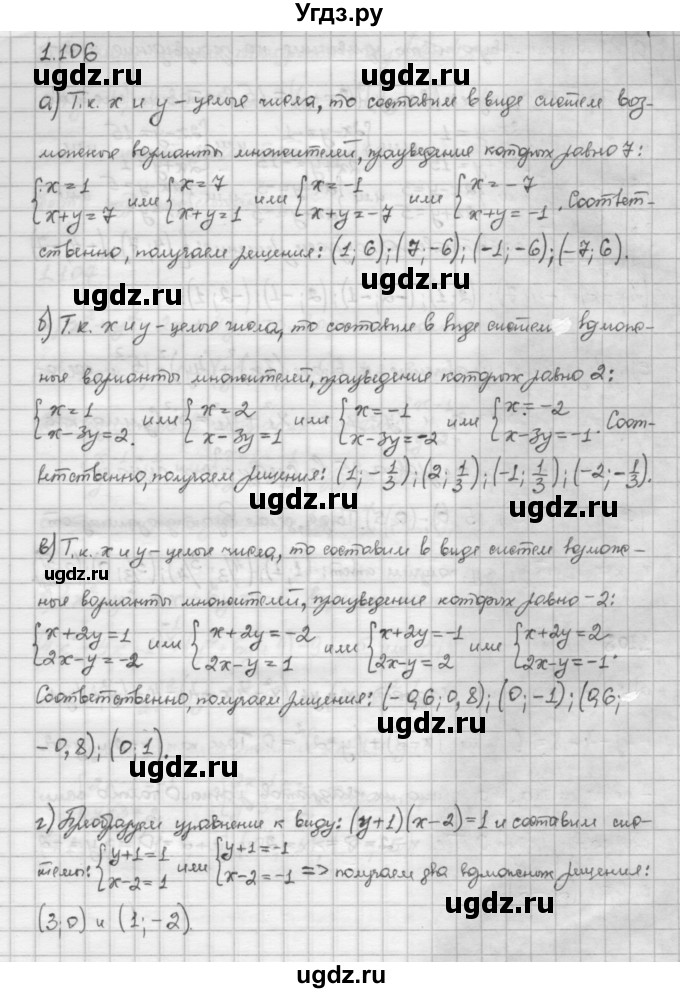 Угдз.ру
1.106
ugdz.ru ugdz.ru
а) Т.к. x и y – целые числа, то составим в виде систем воз-
можные варианты множителей, произведение которых равно 7:
{x = 1 {x = 7 {x = -1 {x = -7
или или или
x+y = 7 x+y = 1 x+y = -7 x+y = -1. Соответ-
ственно, получаем решения: (1; 6); (7; -6); (-1; -6); (-7; 6).
ugdz.ru ugdz.ru
б) Т.к. x и y – целые числа, то составим в виде систем возмож-
ные варианты множителей, произведение которых равно 2:
{x = 1 {x = 2 {x = -1 {x = -2
или или или
x-3y = 2. x-3y = 1 x-3y = -2 x-3y = -1. Соот-
ветственно, получаем решения: (1; -1/3); (2; 1/3); (-1; 1/3); (-2; -1/3).
ugdz.ru ugdz.ru
в) Т.к. x и y – целые числа, то составим в виде систем возмож-
ugdz.ru
ные варианты множителей, произведение которых равно -2:
{x+2y = 1 {x+2y = -2 {x+2y = -1 {x+2y = 2
или или или
2x-y = -2 2x-y = 1 2x-y = 2 2x-y = -1.
Соответственно, получаем решения: (-0,6; 0,8); (0; -1); (0,6;
-0,8); (0; 1).
ugdz.ru ugdz.ru
г) Преобразуем уравнение к виду: (y+1)(x-2) = 1 и составим сис-
темы: {y+1 = 1 или {y+1 = -1
x-2 = 1 x-2 = -1 => получаем два возможных решения:
(3; 0) и (1; -2).
ugdz.ru ugdz.ru
ugdz.ru